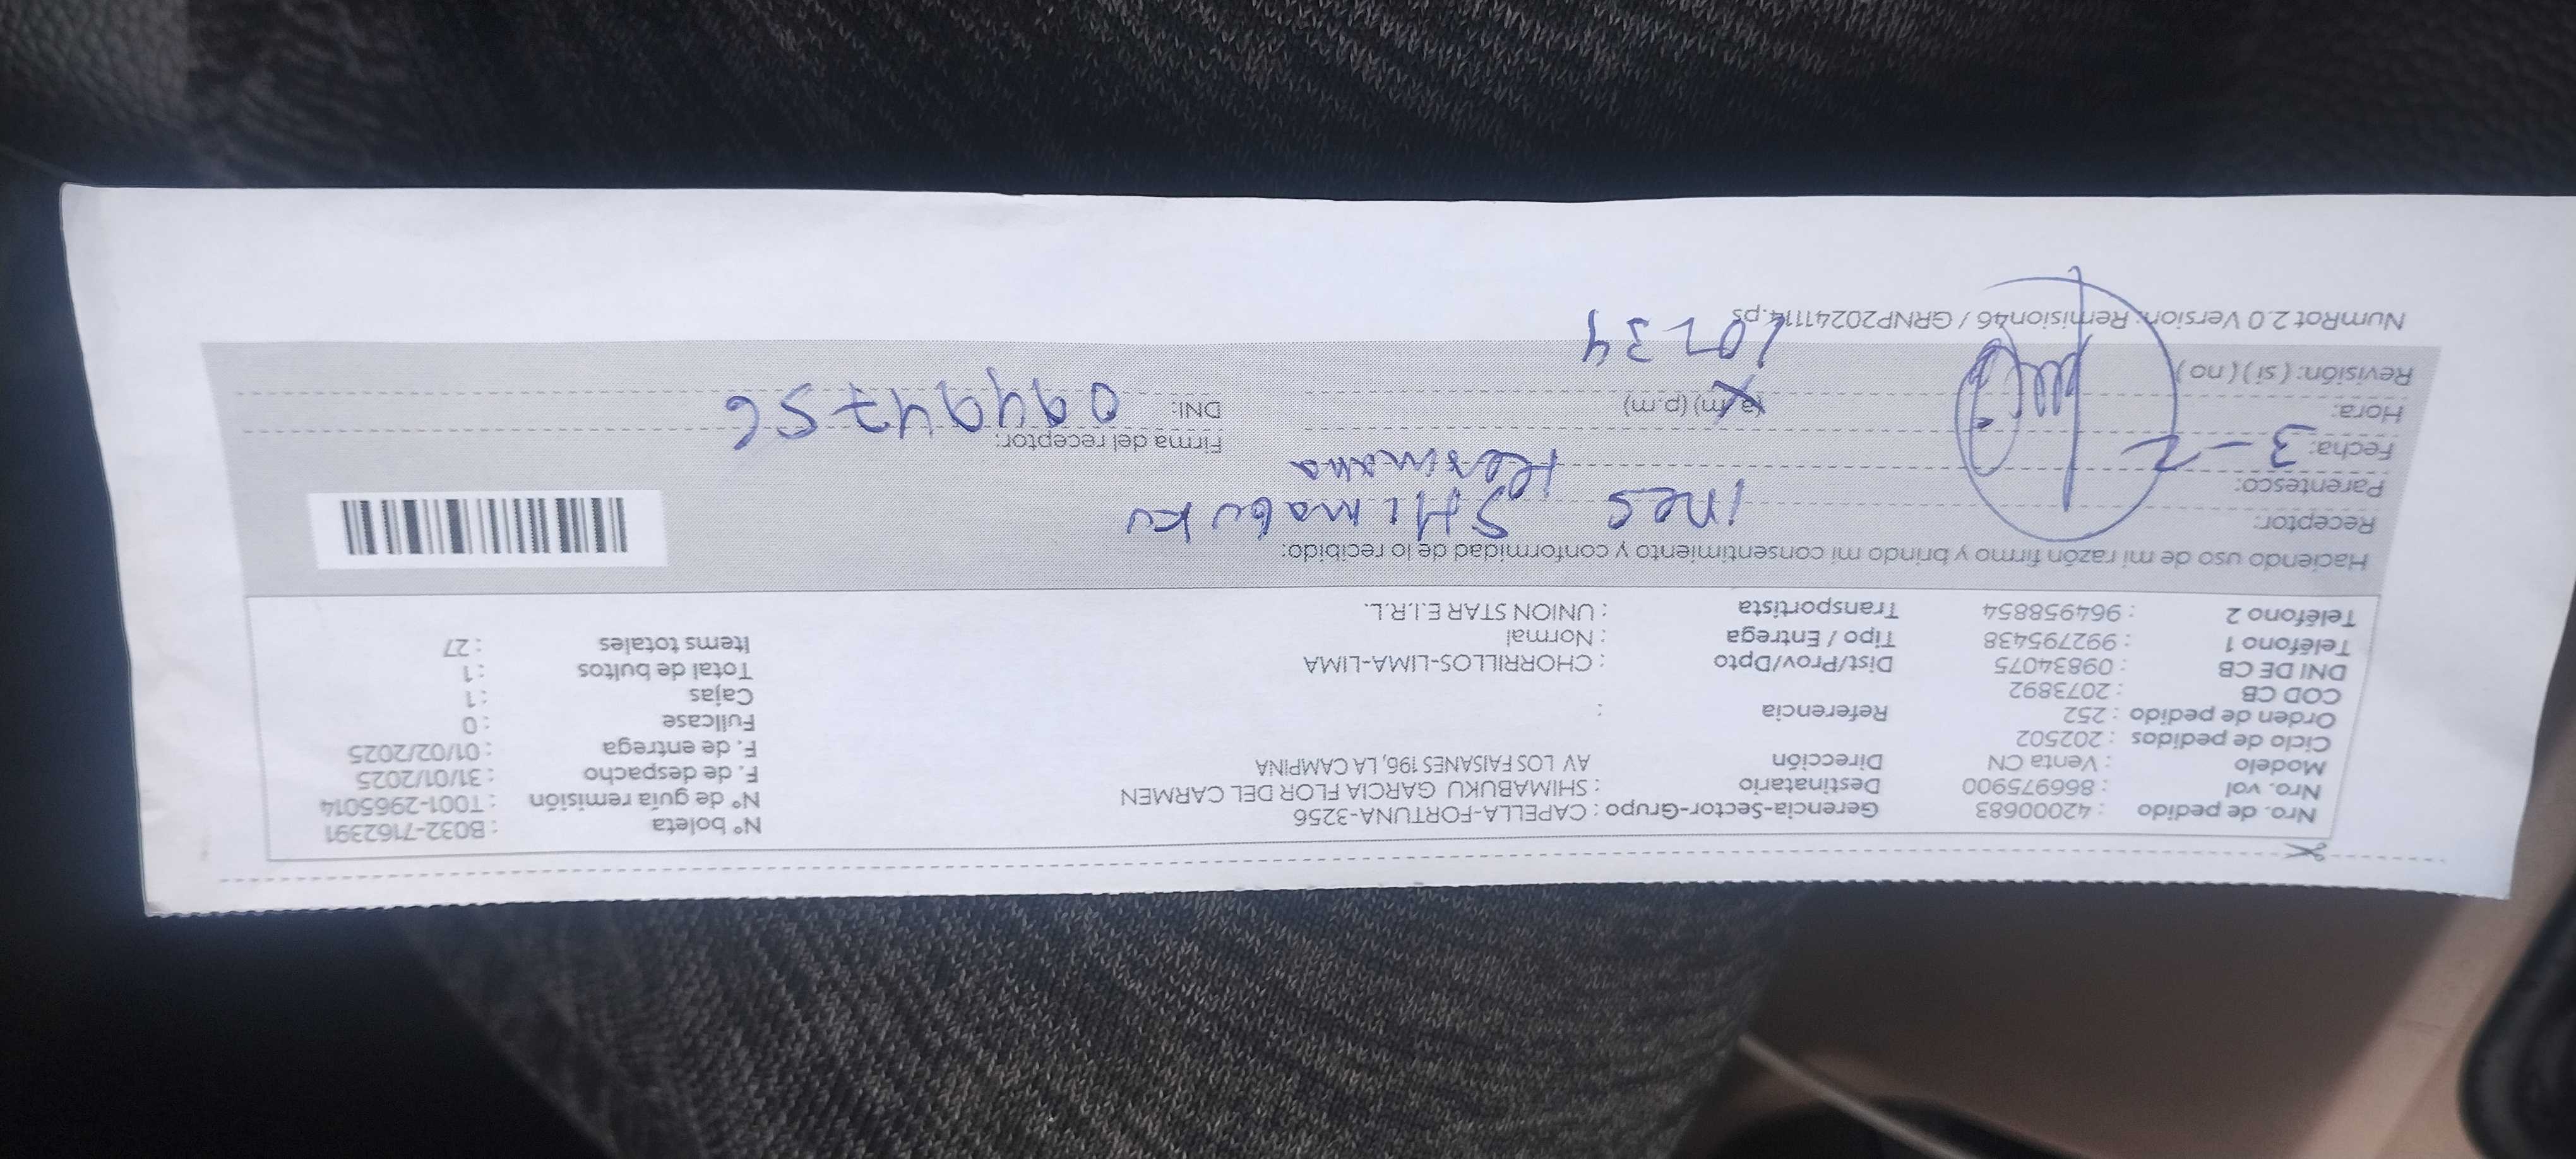 Nro. de pedido : 42000683 Gerencia-Sector-Grupo : CAPELLA-FORTUNA-3256 N° boleta : B032-7162391
Nro. vol : 866975900 Destinatario : SHIMABUKU GARCIA FLOR DEL CARMEN N° de guía remisión : T001-2965014
Modelo : Venta CN Dirección AV LOS FAISANES 196, LA CAMPINA F. de despacho : 31/01/2025
Ciclo de pedidos : 202502 F. de entrega : 01/02/2025
Orden de pedido : 252 Referencia : Fullcase : 0
COD CB : 2073892 Cajas : 1
DNI DE CB : 09834075 Dist/Prov/Dpto : CHORRILLOS-LIMA-LIMA Total de bultos : 1
Teléfono 1 : 992795438 Tipo / Entrega : Normal Items totales : 27
Teléfono 2 : 964958854 Transportista : UNION STAR E.I.R.L.
Haciendo uso de mi razón firmo y brindo mi consentimiento y conformidad de lo recibido:
Receptor: Ines SHimabuku
Parentesco: Hermana
Fecha: 3-2 Firma del receptor:
Hora: (a.m) (p.m) DNI: 09494756
Revisión: ( si ) ( no )
NumRot 2.0 Version: Remision46 / GRNP20241114.ps